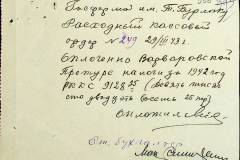 Госферма им. Т. Будлику
Расходный кассовый
ордер № 249 29/III 43 г.
Оплоченно Варваровской
Претуре налогы за 1942 год
РККС 9128 25 (девять тысяч
сто двадцать восемь 25 пф)
Оплатил
Ст. бухгалтер